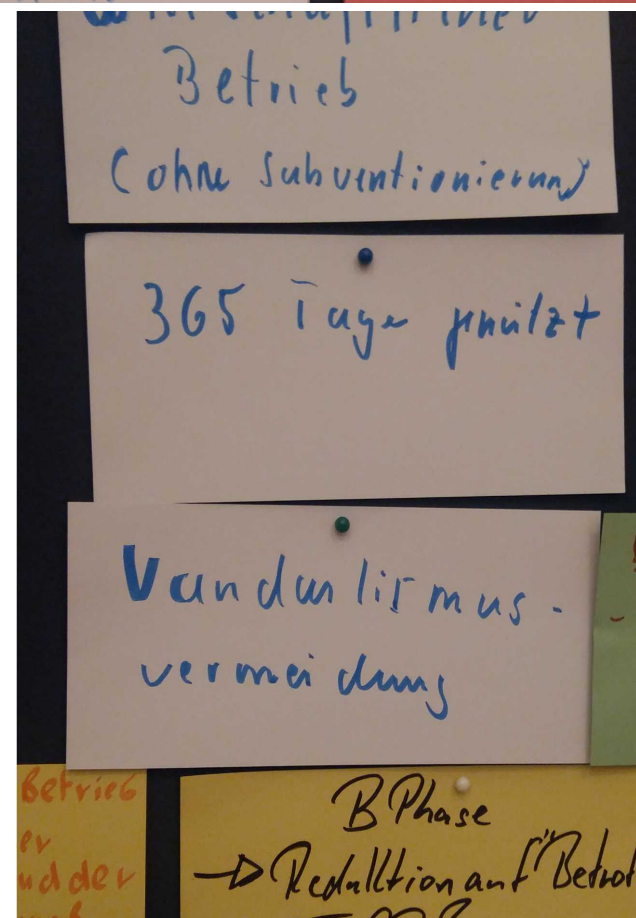 Betrieb
(ohne Subventionierung)
365 Tage genützt
Vandalismus-
vermeidung
Betrieb
er
und der
B Phase
→ Reduktion auf "Betrot